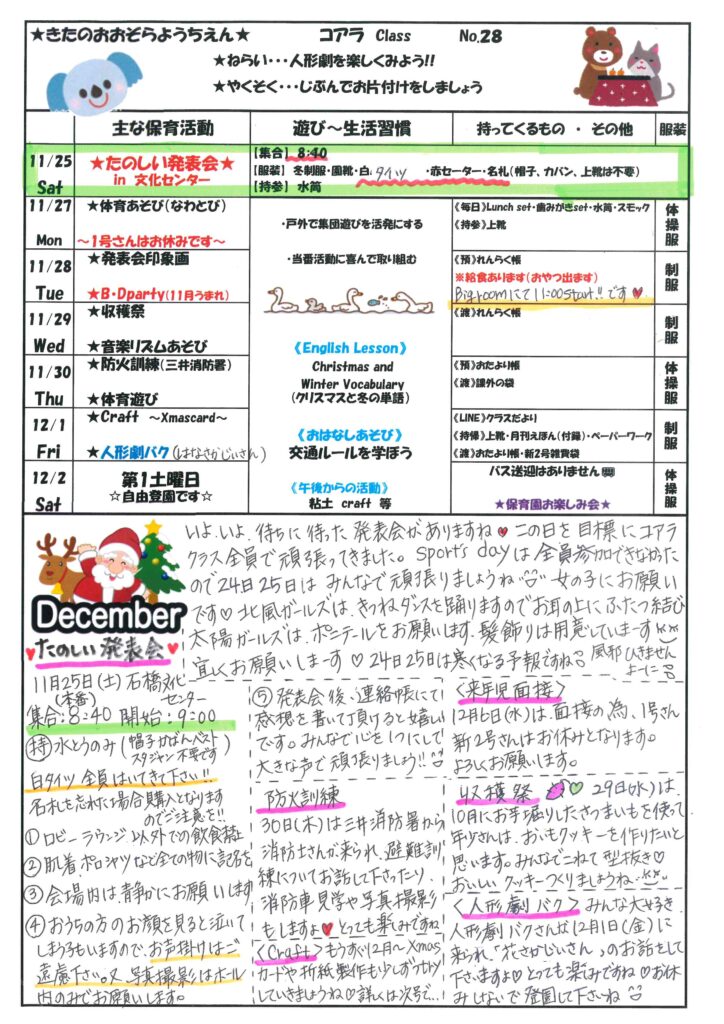 ★きたのおおぞらようちえん★ コアラ Class No.28
★ねらい・・・人形劇を楽しくみよう!!
★やくそく・・・じぶんでお片付けをしましょう
主な保育活動 遊び～生活習慣 持ってくるもの ・ その他 服装
11/25 Sat
★たのしい発表会★
in 文化センター
【集合】 8:40
【服装】 冬制服・園靴・白タイツ ・赤セーター・名札(帽子、カバン、上靴は不要)
【持参】 水筒
11/27 Mon
★体育あそび(なわとび)
～1号さんはお休みです～
・戸外で集団遊びを活発にする
《毎日》Lunch set・歯みがきset・水筒・スモック
《持参》上靴
体操服
11/28 Tue
★発表会印象画
★B・Dparty(11月うまれ)
・当番活動に喜んで取り組む
《預》れんらく帳
※給食あります(おやつ出ます)
Big roomにて11:00start!!です♥
制服
11/29 Wed
★収穫祭
★音楽リズムあそび
《渡》れんらく帳
制服
《English Lesson》
Christmas and
Winter Vocabulary
(クリスマスと冬の単語)
11/30 Thu
★防火訓練(三井消防署)
★体育遊び
《預》おたより帳
《渡》課外の袋
体操服
12/1 Fri
★Craft ～Xmascard～
★人形劇バク(はなさかじいさん)
《おはなしあそび》
交通ルールを学ぼう
《LINE》クラスだより
《持帰》上靴・月刊えほん(付録)・ペーパーワーク
《渡》おたより帳・新2号雑費袋
制服
12/2 Sat
第1土曜日
☆自由登園です☆
《午後からの活動》
粘土 craft 等
バス送迎はありません
★保育園お楽しみ会★
体操服
いよいよ、待ちに待った発表会がありますね♥この日を目標にコアラ
クラス全員で頑張ってきました。sports dayは全員参加できなかった
ので24日25日はみんなで頑張りましょうね 女の子にお願い
です♡北風ガールズは、きつねダンスを踊りますのでお耳の上にふたつ結び
太陽ガールズは、ポニテールをお願いします。髪飾りは用意していまーす
宜しくお願いしまーす♡24日25日は寒くなる予報ですね 風邪ひきません
よーに
December
♥たのしい発表会♥
11月25日(土)石橋文化センター
(本番)
集合:8:40 開始:9:00
㊕水とうのみ(帽子かばんベスト
スタジャン不要です)
白タイツ全員はいてきて下さい!!
名札を忘れた場合購入となります
のでご注意を!!
①ロビーラウンジ以外での飲食禁止
②肌着、ポロシャツなど全ての物に記名を
③会場内は静かにお願いします
④おうちの方のお顔を見ると泣いて
しまう子もいますので、お声掛けはご
遠慮下さい。又、写真撮影はホール
内のみでお願いします。
⑤発表会後、連絡帳にて
感想を書いて頂けると嬉しい
です。みんなで心を1つにして
大きな声で頑張りましょう!!
防火訓練
30日(木)は三井消防署から
消防士さんが来られ、避難訓
練についてお話して下さったり、
消防車見学や写真撮影
もしますよ♥とっても楽しみですね
<Craft>もうすぐ12月～Xmas
カードや折紙製作も少しずつスタート
していきましょうね♡詳しくは次号で…
<来年児面接>
12月6日(水)は、面接の為、1号さん
新2号さんはお休みとなります。
よろしくお願いします。
収穫祭 29日(水)は、
10月にお芋堀りしたさつまいもを使って
年少さんは、おいもクッキーを作りたいと
思います。みんなでこねて型抜き♡
おいしいクッキーつくりましょうね
<人形劇バク>みんな大好き
人形劇バクさんが12月1日(金)に
来られ、「花さかじいさん」のお話をして
下さいますよ♡とっても楽しみですね♡お休
みしないで登園して下さいね